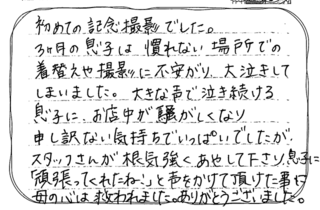 初めての記念撮影でした。
3ヶ月の息子は慣れない場所での
着替えや撮影に不安がり、大泣きして
しまいました。大きな声で泣き続ける
息子に、お店中が騒がしくなり
申し訳ない気持ちでいっぱいでしたが、
スタッフさんが根気強くあやして下さり、息子に
「頑張ってくれたね!」と声をかけて頂けた事に
母の心は救われました。ありがとうございました。